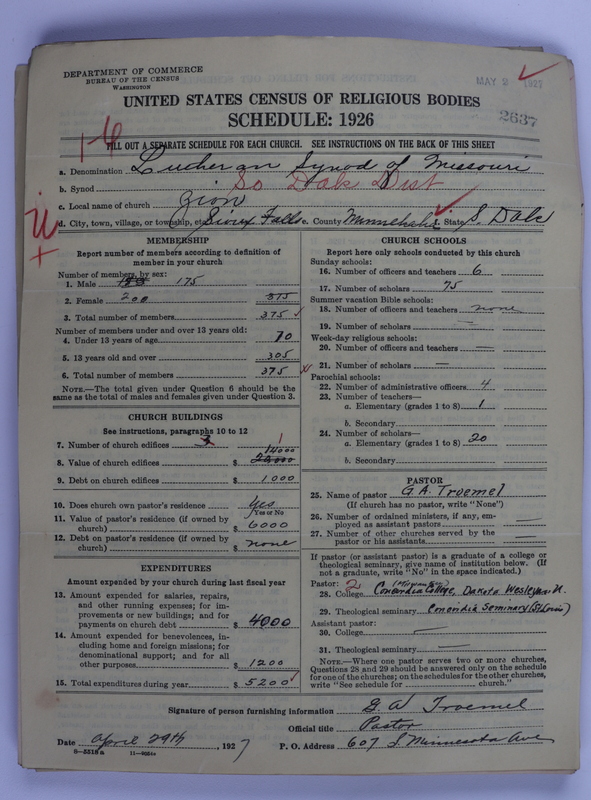 DEPARTMENT OF COMMERCE
BUREAU OF THE CENSUS
WASHINGTON
MAY 2 1927
UNITED STATES CENSUS OF RELIGIOUS BODIES
SCHEDULE: 1926
2637
FILL OUT A SEPARATE SCHEDULE FOR EACH CHURCH. SEE INSTRUCTIONS ON THE BACK OF THIS SHEET
a. Denomination Lutheran Synod of Missouri
b. Synod So Dak Dist
c. Local name of church Zion
d. City, town, village, or township, etc. Sioux Falls e. County Minnehaha f. State S. Dak
MEMBERSHIP
Report number of members according to definition of
member in your church
Number of members, by sex:
1. Male 175
2. Female 200 375
3. Total number of members 375
Number of members under and over 13 years old:
4. Under 13 years of age 70
5. 13 years old and over 305
6. Total number of members 375
NOTE.—The total given under Question 6 should be the
same as the total of males and females given under Question 3.
CHURCH BUILDINGS
See instructions, paragraphs 10 to 12
7. Number of church edifices 3 1
14000
8. Value of church edifices $ 20,000
9. Debt on church edifices $ 1000
10. Does church own pastor's residence Yes
Yes or No
11. Value of pastor's residence (if owned by
church) $ 6000
12. Debt on pastor's residence (if owned by
church) $ none
EXPENDITURES
Amount expended by your church during last fiscal year
13. Amount expended for salaries, repairs,
and other running expenses; for im-
provements or new buildings; and for
payments on church debt $ 4000
14. Amount expended for benevolences, in-
cluding home and foreign missions; for
denominational support; and for all
other purposes $ 1200
15. Total expenditures during year $ 5200
CHURCH SCHOOLS
Report here only schools conducted by this church
Sunday schools:
16. Number of officers and teachers 6
17. Number of scholars 75
Summer vacation Bible schools:
18. Number of officers and teachers none
19. Number of scholars —
Week-day religious schools:
20. Number of officers and teachers —
21. Number of scholars —
Parochial schools:
22. Number of administrative officers 4
23. Number of teachers—
a. Elementary (grades 1 to 8) 1
b. Secondary
24. Number of scholars—
a. Elementary (grades 1 to 8) 20
b. Secondary
PASTOR
25. Name of pastor G. A. Troemel
(If church has no pastor, write "None")
26. Number of ordained ministers, if any, em-
ployed as assistant pastors —
27. Number of other churches served by the
pastor or his assistants —
If pastor (or assistant pastor) is a graduate of a college or
theological seminary, give name of institution below. (If
not a graduate, write "No" in the space indicated.)
Pastor: 2 (Milwaukee)
28. College Concordia College, Dakota Wesleyan U.
29. Theological seminary Concordia Seminary (St Louis)
Assistant pastor:
30. College —
31. Theological seminary —
NOTE.—Where one pastor serves two or more churches,
Questions 28 and 29 should be answered only on the schedule
for one of the churches; on the schedules for the other churches,
write "See schedule for church."
Signature of person furnishing information G. A Troemel
Official title Pastor
Date April 29th, 1927 P. O. Address 607 S. Minnesota Ave
8—5518a 11—9054a